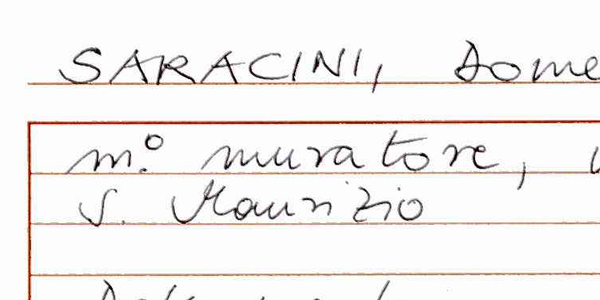 SARACINI, Dome
m.° muratore,
S. Maurizio